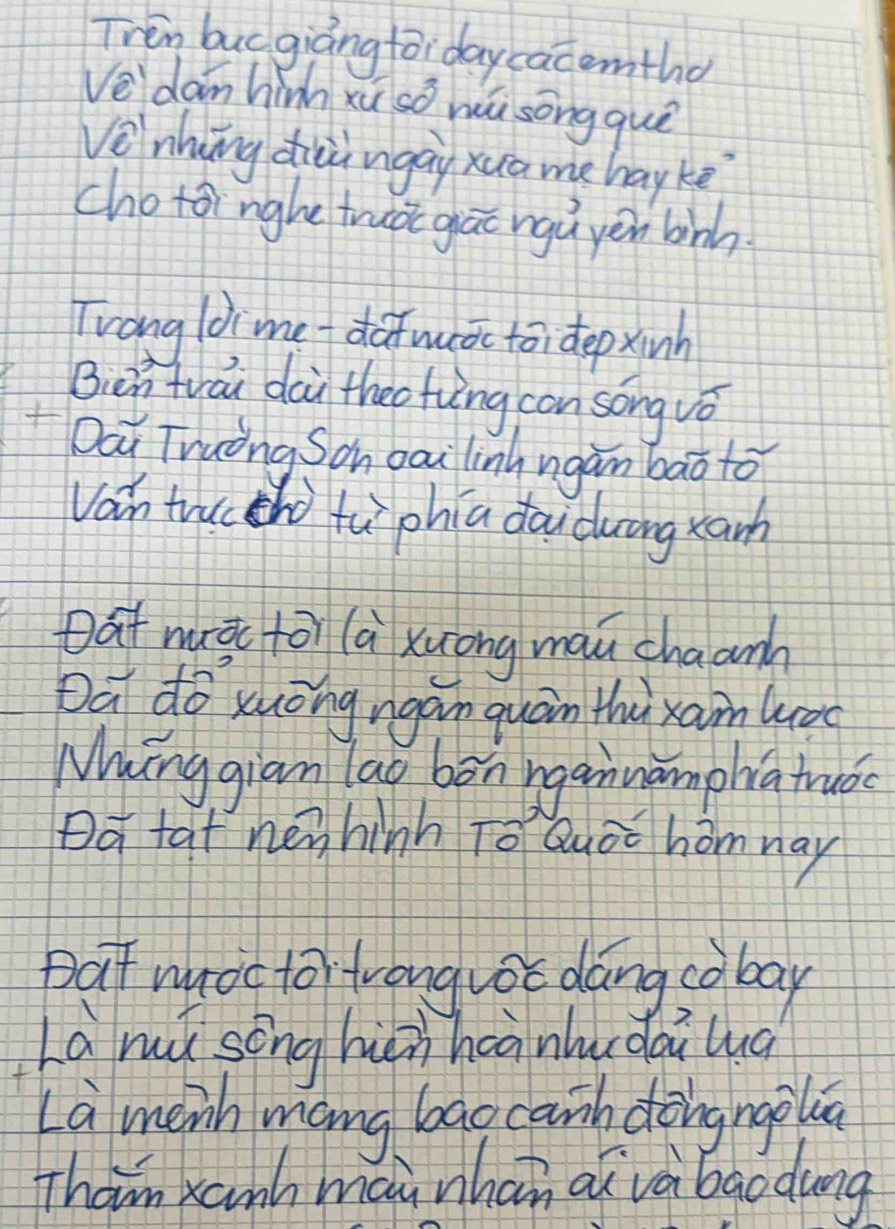 Trên bục giảng tôi dạy các em thơ
Về dáng hình xứ sở núi sông quê
Về những điều ngày xưa mẹ hay kể
Cho tôi nghe trước giấc ngủ yên bình.
Trong lời mẹ - đất nước tôi đẹp xinh
Biển trải dài theo từng con sóng vỗ
Dãy Trường Sơn oai linh ngăn bão tố
Vẫn trực chờ từ phía đại dương xanh
Đất nước tôi là xương máu cha anh
Đã đổ xuống ngăn quân thù xâm lược
Những gian lao bốn ngàn năm phía trước
Đã tạt nên hình Tổ Quốc hôm nay
Đất nước tôi trong vóc dáng cò bay
Là núi sông hiền hoà như dải lụa
Là mênh mang bao cánh đồng ngô lúa
Thắm xanh màu nhân ái và bao dung